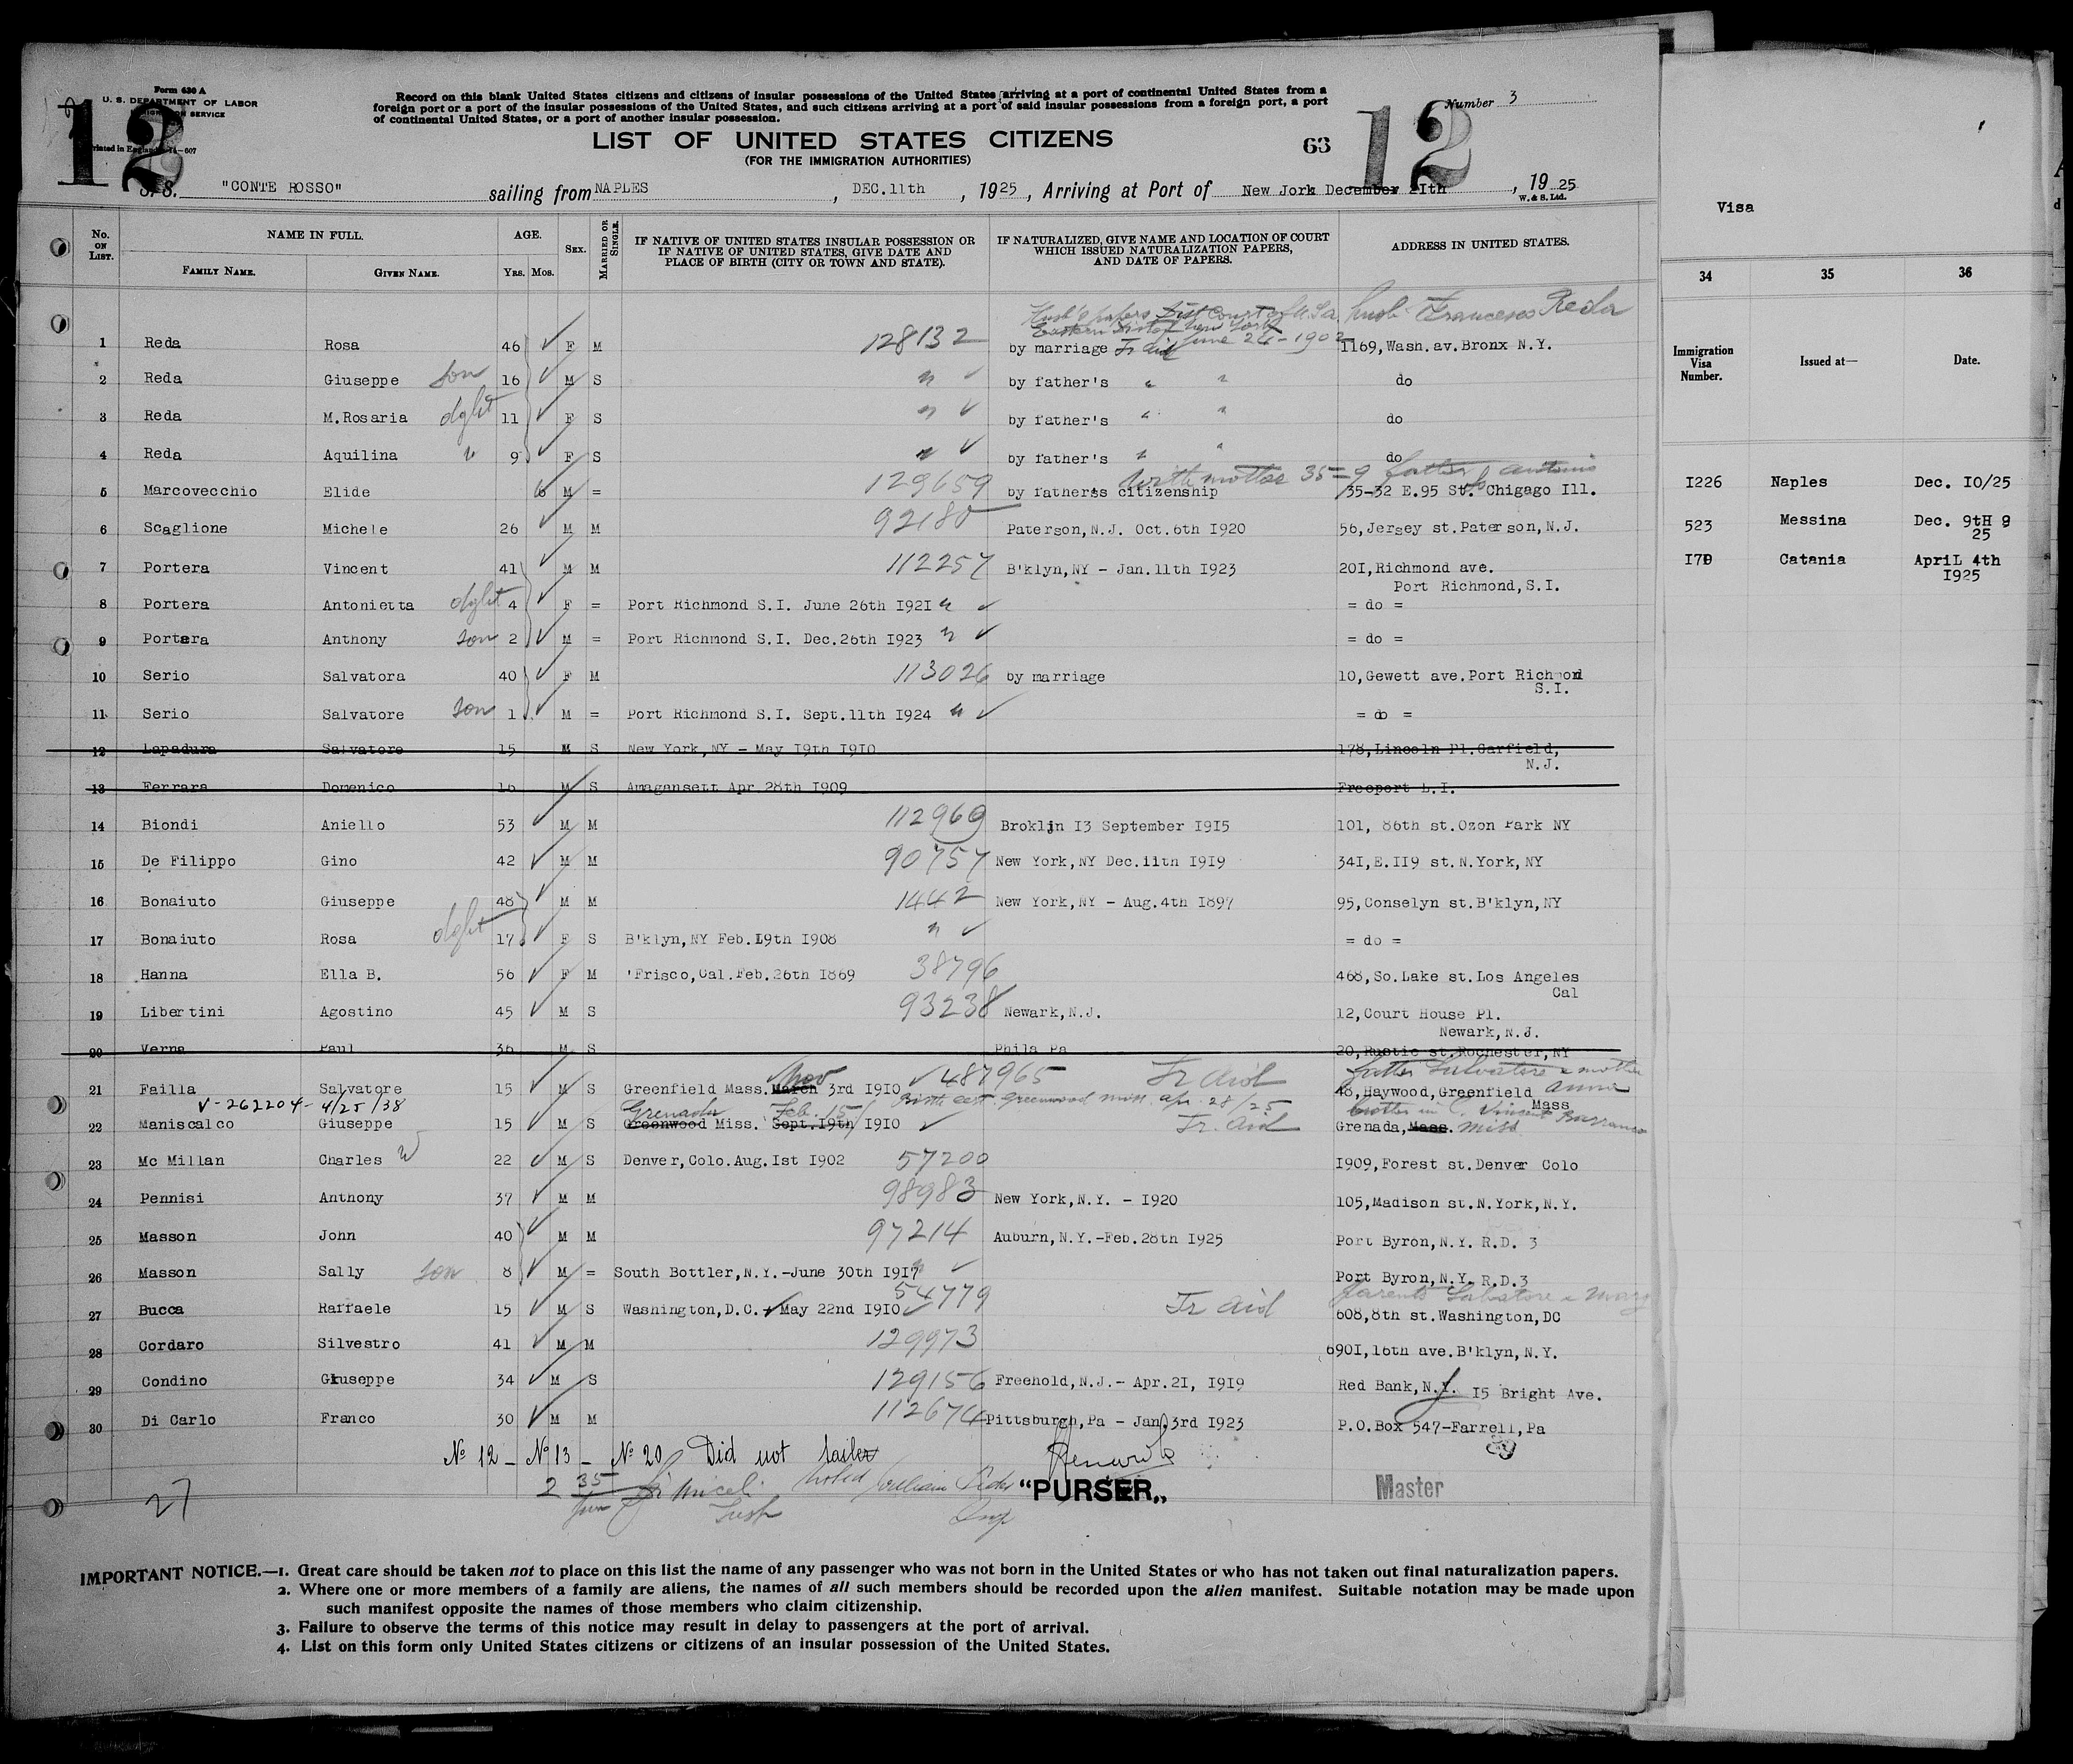 Form 630 A
U. S. DEPARTMENT OF LABOR
SERVICE
Printed in England
12
Record on this blank United States citizens and citizens of insular possessions of the United States arriving at a port of continental United States from a
foreign port or a port of the insular possessions of the United States, and such citizens arriving at a port of said insular possessions from a foreign port, a port
of continental United States, or a port of another insular possession.
Number 3
12
LIST OF UNITED STATES CITIZENS
63
(FOR THE IMMIGRATION AUTHORITIES)
S. S. "CONTE ROSSO" sailing from NAPLES , DEC.11th , 1925 , Arriving at Port of New Jork December 2Ith , 19 25
W. & S. Ltd.
No. ON LIST. NAME IN FULL. AGE. SEX. MARRIED OR SINGLE.
FAMILY NAME. GIVEN NAME. Yrs. Mos.
IF NATIVE OF UNITED STATES INSULAR POSSESSION OR
IF NATIVE OF UNITED STATES, GIVE DATE AND
PLACE OF BIRTH (CITY OR TOWN AND STATE).
IF NATURALIZED, GIVE NAME AND LOCATION OF COURT
WHICH ISSUED NATURALIZATION PAPERS,
AND DATE OF PAPERS.
ADDRESS IN UNITED STATES.
Hush's papers Dist Court of U.S.a. hush- Francesco Reda
Eastern Dist of New York
1 Reda Rosa 46 F M 128132 by marriage Tr aid June 26-1902 1169,Wash.av.Bronx N.Y.
2 Reda Giuseppe son 16 M S " by father's " " do
3 Reda M.Rosaria dght 11 F S " by father's " " do
4 Reda Aquilina " 9 F S " by father's " " do
with mother 35=9 father Antonio
5 Marcovecchio Elide 6 M = 129659 by fatherss citizenship 35-32 E.95 St. Chigago Ill.
6 Scaglione Michele 26 M M 92180 Paterson,N.J. Oct.6th I920 56,Jersey st.Paterson,N.J.
7 Portera Vincent 41 M M 112257 B'klyn,NY - Jan.11th I923 20I,Richmond ave.
Port Richmond,S.I.
8 Portera Antonietta dght 4 F = Port Richmond S.I. June 26th I92I " = do =
9 Portera Anthony son 2 M = Port Richmond S.I. Dec.26th I923 " = do =
10 Serio Salvatora 40 F M 113026 by marriage 10,Gewett ave.Port Richmond
S.I.
11 Serio Salvatore son 1 M = Port Richmond S.I. Sept.11th I924 " = do =
12 Lapadura Salvatore 15 M S New York,NY - May I9th I9I0 178,Lincoln Pl.Garfield,
N.J.
13 Ferrara Domenico 16 M S Amagansett Apr.28th I909 Freeport L.I.
14 Biondi Aniello 53 M M 112960 Broklin I3 September I9I5 101, 86th st.Ozon Park NY
15 De Filippo Gino 42 M M 90757 New York,NY Dec.11th I9I9 34I,E.II9 st.N.York,NY
16 Bonaiuto Giuseppe 48 M M 1442 New York,NY - Aug.4th I897 95,Conselyn st.B'klyn,NY
17 Bonaiuto Rosa dght 17 F S B'klyn,NY Feb.I9th I908 " = do =
18 Hanna Ella B. 56 F M 'Frisco,Cal.Feb.26th I869 38796 468,So.Lake st.Los Angeles
Cal
19 Libertini Agostino 45 M S 93238 Newark,N.J. 12,Court House Pl.
Newark,N.J.
20 Verna Paul 36 M S Phila Pa 20,Rustic st.Rochester,NY
Nov 487965 Tr aid father Salvatore & mother
21 Failla Salvatore 15 M S Greenfield Mass. March 3rd I9I0 48,Haywood,Greenfield Anna
V-262204- 4/25/38 Birth cert. Greenwood miss. apr. 28/25 Mass
Grenada Feb. 15 brother in l. Vincent Barranco
22 Maniscalco Giuseppe 15 M S Greenwood Miss. Sept.19th I9I0 Tr. aid Grenada, Mass. Miss
23 Mc Millan Charles W 22 M S Denver,Colo.Aug.Ist I902 57200 I909,Forest st.Denver Colo
24 Pennisi Anthony 37 M M 98983 New York,N.Y. - I920 105,Madison st.N.York,N.Y.
25 Masson John 40 M M 97214 Auburn,N.Y.-Feb.28th I925 Port Byron,N.Y. R.D. 3
26 Masson Sally son 8 M = South Bottler,N.Y.-June 30th I9I7 " Port Byron,N.Y. R.D.3
54779 parents Salvatore & Mary
27 Bucca Raffaele 15 M S Washington,D.C. May 22nd I9I0 Tr aid 608,8th st.Washington,DC
28 Cordaro Silvestro 41 M M 129973 690I,16th ave.B'klyn,N.Y.
29 Condino Giuseppe 34 M S 129156 Freehold,N.J.- Apr.21, I9I9 Red Bank,N.J. I5 Bright Ave.
30 Di Carlo Franco 30 M M 112674 Pittsburgh,Pa - Jan.3rd I923 P.O.Box 547-Farrell,Pa
No 12 - No 13 - No 20 Did not sailed
2 35
27
"PURSER„
Master
IMPORTANT NOTICE.—1. Great care should be taken not to place on this list the name of any passenger who was not born in the United States or who has not taken out final naturalization papers.
2. Where one or more members of a family are aliens, the names of all such members should be recorded upon the alien manifest. Suitable notation may be made upon
such manifest opposite the names of those members who claim citizenship.
3. Failure to observe the terms of this notice may result in delay to passengers at the port of arrival.
4. List on this form only United States citizens or citizens of an insular possession of the United States.
Visa
34 35 36
Immigration Visa Number. Issued at— Date.
I226 Naples Dec. I0/25
523 Messina Dec. 9tH 9
25
I79 Catania ApriL 4th
I925